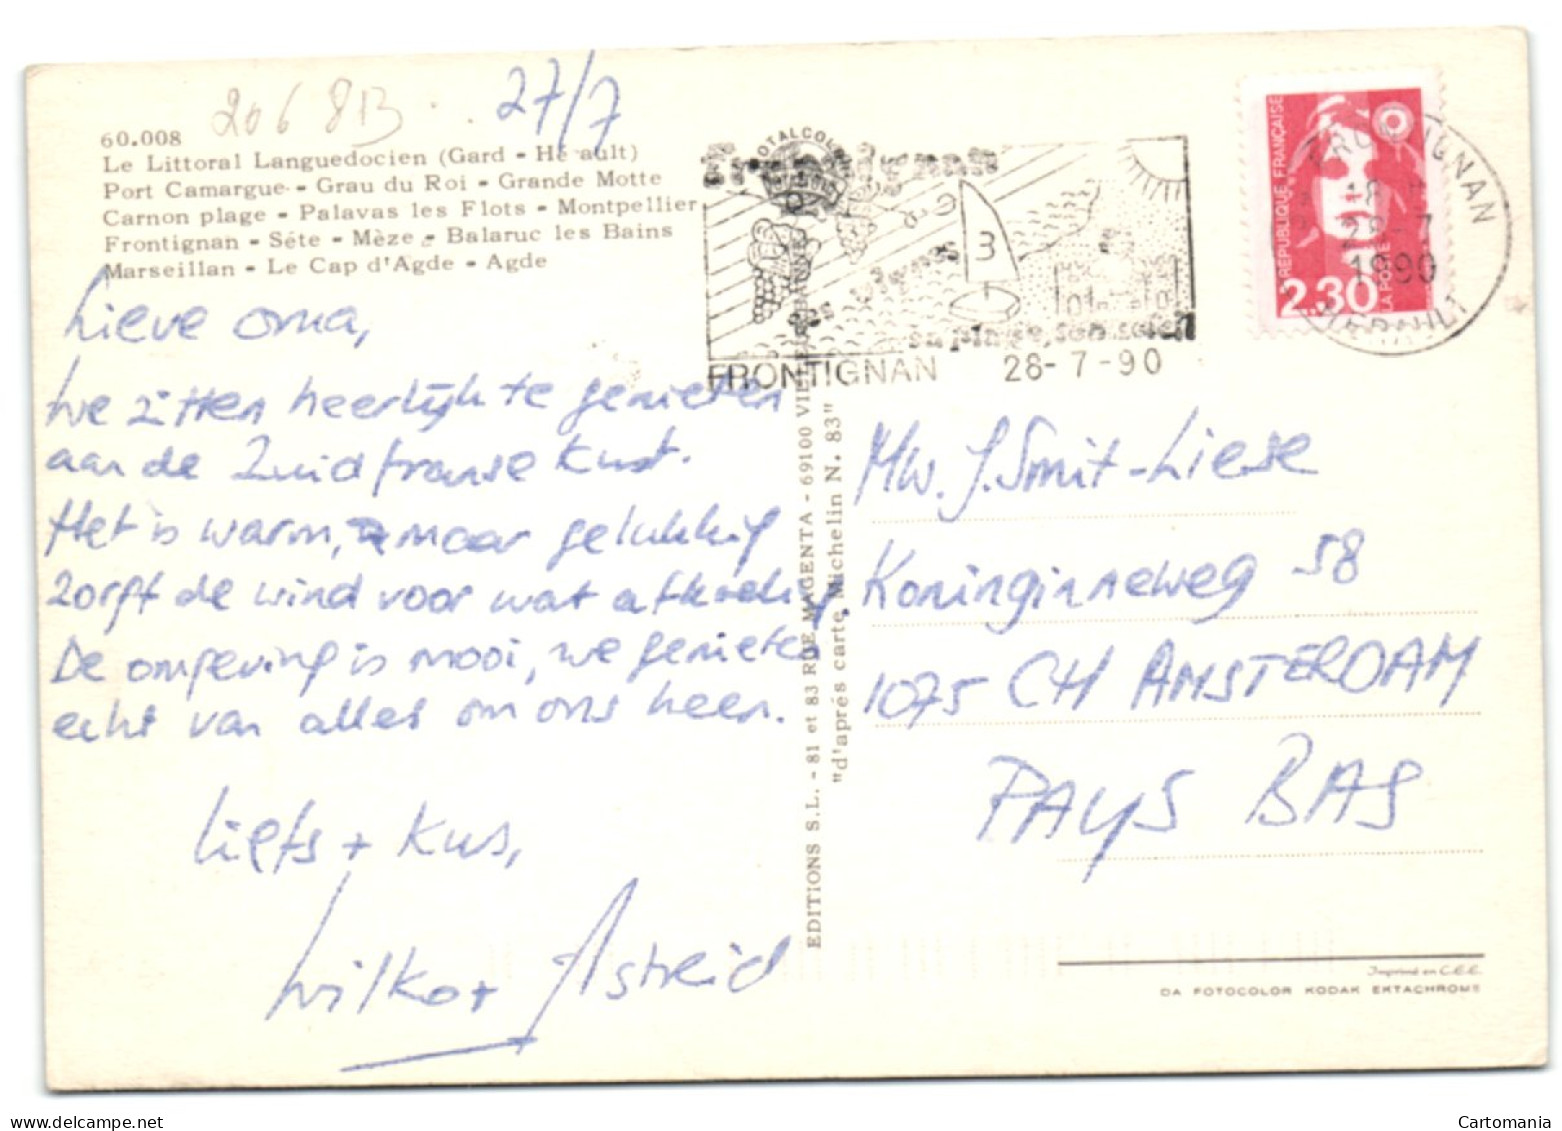 206 813 27/7
60.008
Le Littoral Languedocien (Gard - Hérault)
Port Camargue - Grau du Roi - Grande Motte
Carnon plage - Palavas les Flots - Montpellier
Frontignan - Séte - Mèze - Balaruc les Bains
Marseillan - Le Cap d'Agde - Agde
Lieve oma,
We zitten heerlijk te genieten
aan de Zuidfranse kust.
Het is warm, maar gelukkig
zorgt de wind voor wat afkoeling.
De omgeving is mooi, we genieten
echt van alles om ons heen.
Liefs + kus,
Wilko + Astrid
EDITIONS S.L. - 81 et 83 RUE MAGENTA - 69100
"d'aprés carte Michelin N. 83"
Frontignan
3
sa plage, son soleil
FRONTIGNAN 28-7-90
RÉPUBLIQUE FRANÇAISE
2,30
LA POSTE
FRONTIGNAN
18
28-7
1990
HERAULT
Mw. J. Smit-Liese
Koninginneweg 58
1075 CH AMSTERDAM
PAYS BAS
Imprimé en C.E.E.
DA FOTOCOLOR KODAK EKTACHROME
delcampe.net
Cartomania